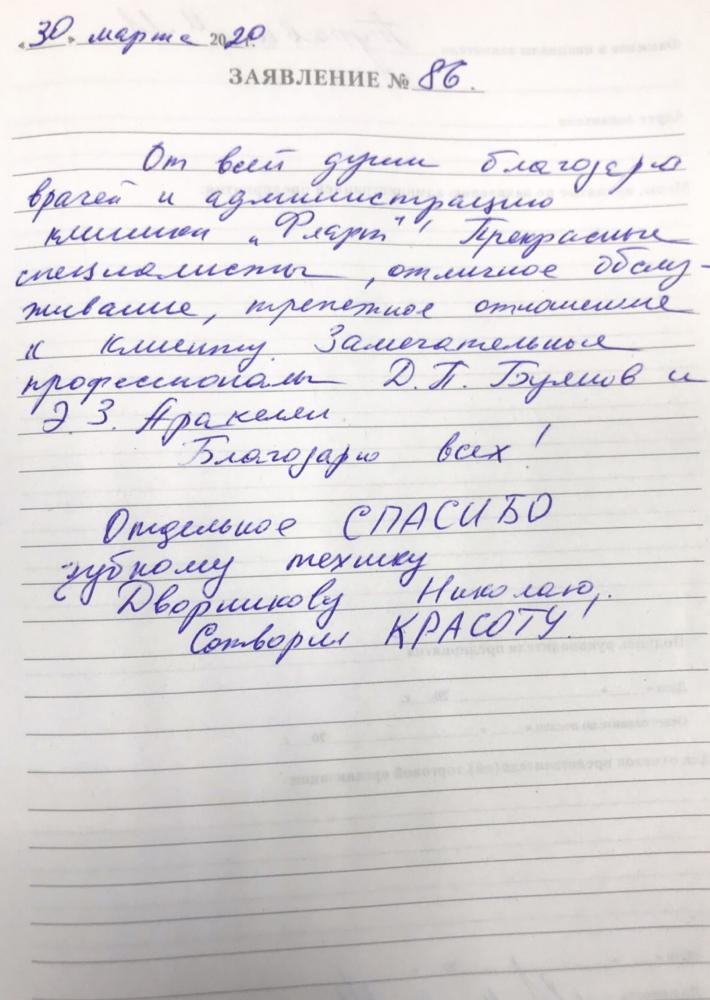 «30» марта 2020 г.
ЗАЯВЛЕНИЕ № 86.
От всей души благодарю
врачей и администрацию
клиники „Фларт"! Прекрасные
специалисты, отличное обслу-
живание, трепетное отношение
к клиенту. Замечательные
профессионалы Д.П. Буянов и
Э.З. Аракелян.
Благодарю всех!
Отдельное СПАСИБО
зубному технику
Дворникову Николаю,
Сотворил КРАСОТУ!